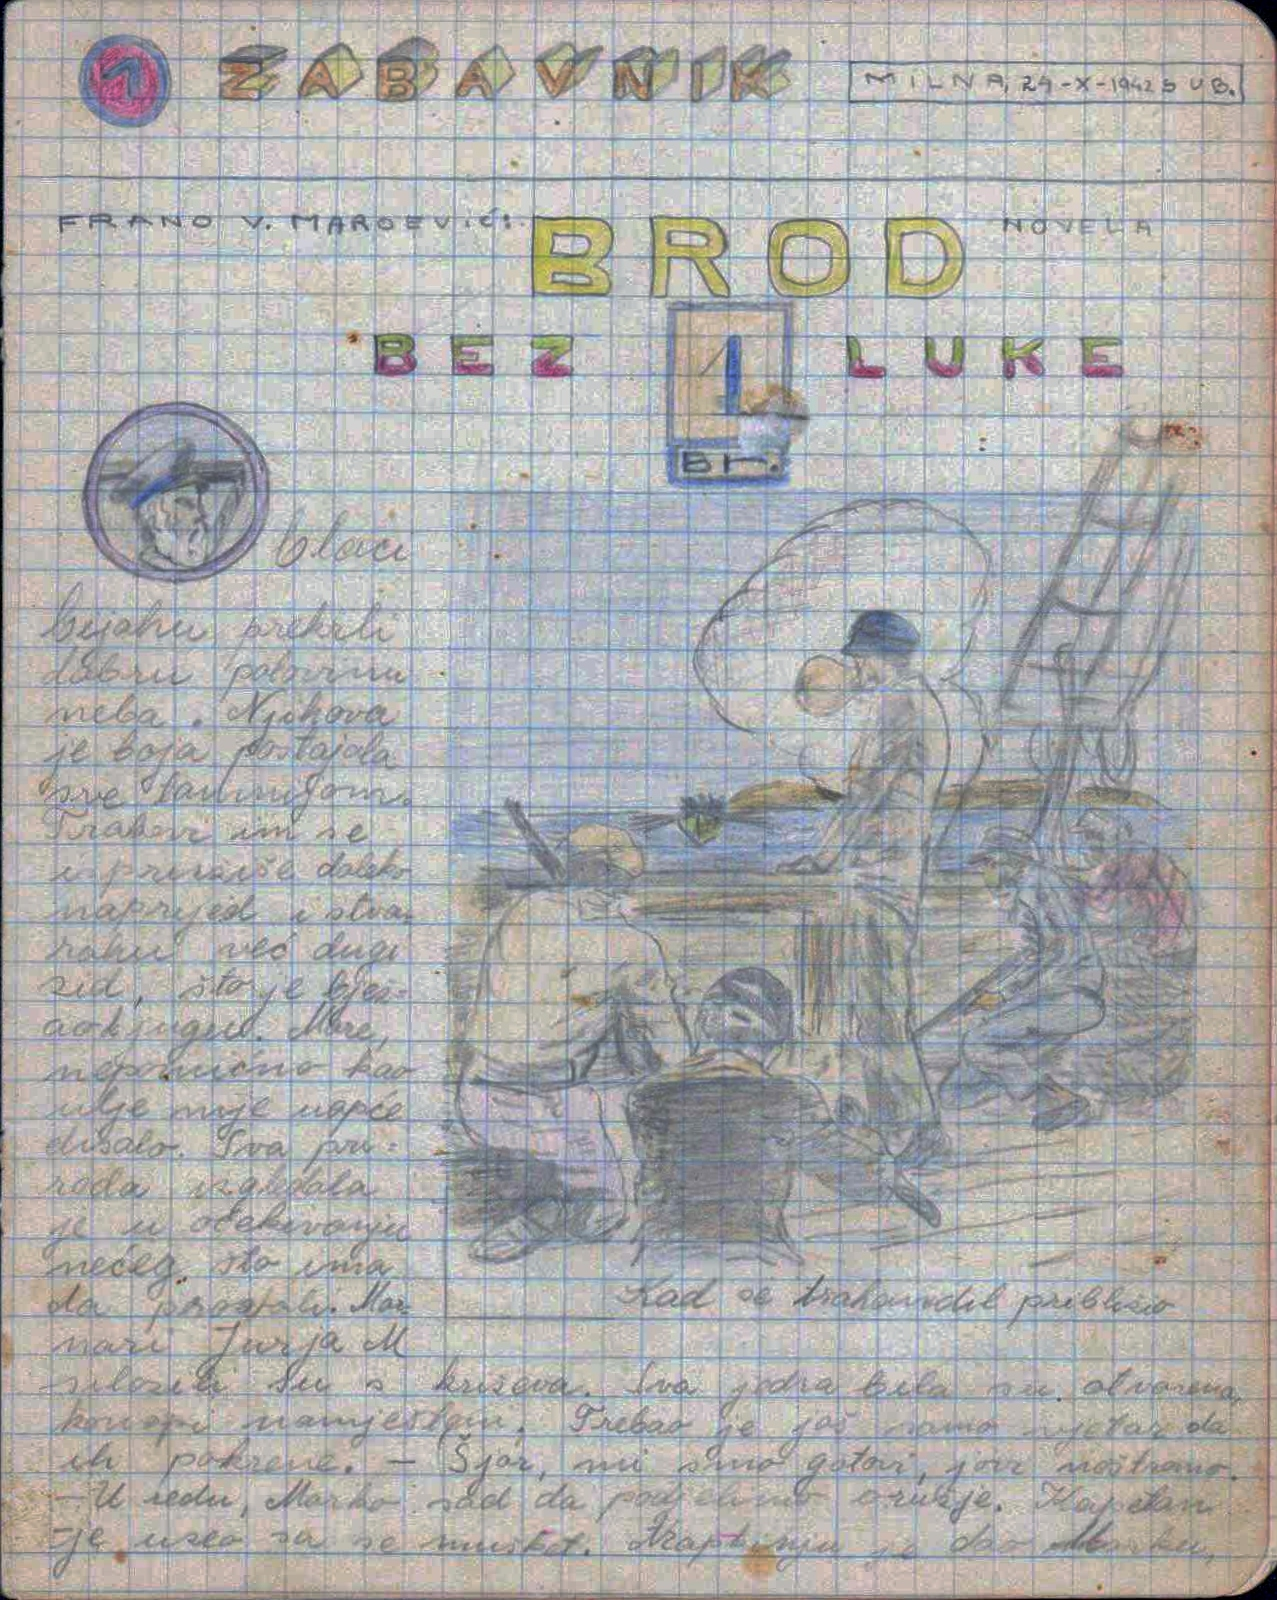 1 ZABAVNIK
MILNA, 24-X-1942 SUB.
FRANO V. MAROEVIĆ: BROD NOVELA
BEZ 1 LUKE
Br.
blaci
bijahu prekrili
dobru polovinu
neba. Njihova
je boja postajala
sve tamnijom.
Trakovi im se
ispružiše daleko
naprijed i stva-
rahu već dugi
zid, što je bjež-
ao k jugu. More,
nepomično kao
ulje nije uopće
disalo. Sva pri-
roda izgledala
je u očekivanju
nečeg što ima
da nastali. Mor-
nari Jurja M
silazili su s križeva. Sva jedra bila su otvorena,
konopi namješteni. Trebao je još samo vjetar da
ih pokrene. - Šjor, mi smo gotovi, javi noštromo.
- U redu, Marko sad da podjelimo oružje. Kapetan
je uzeo za se muškot. je dao Marku,
Kad se trabakul približio